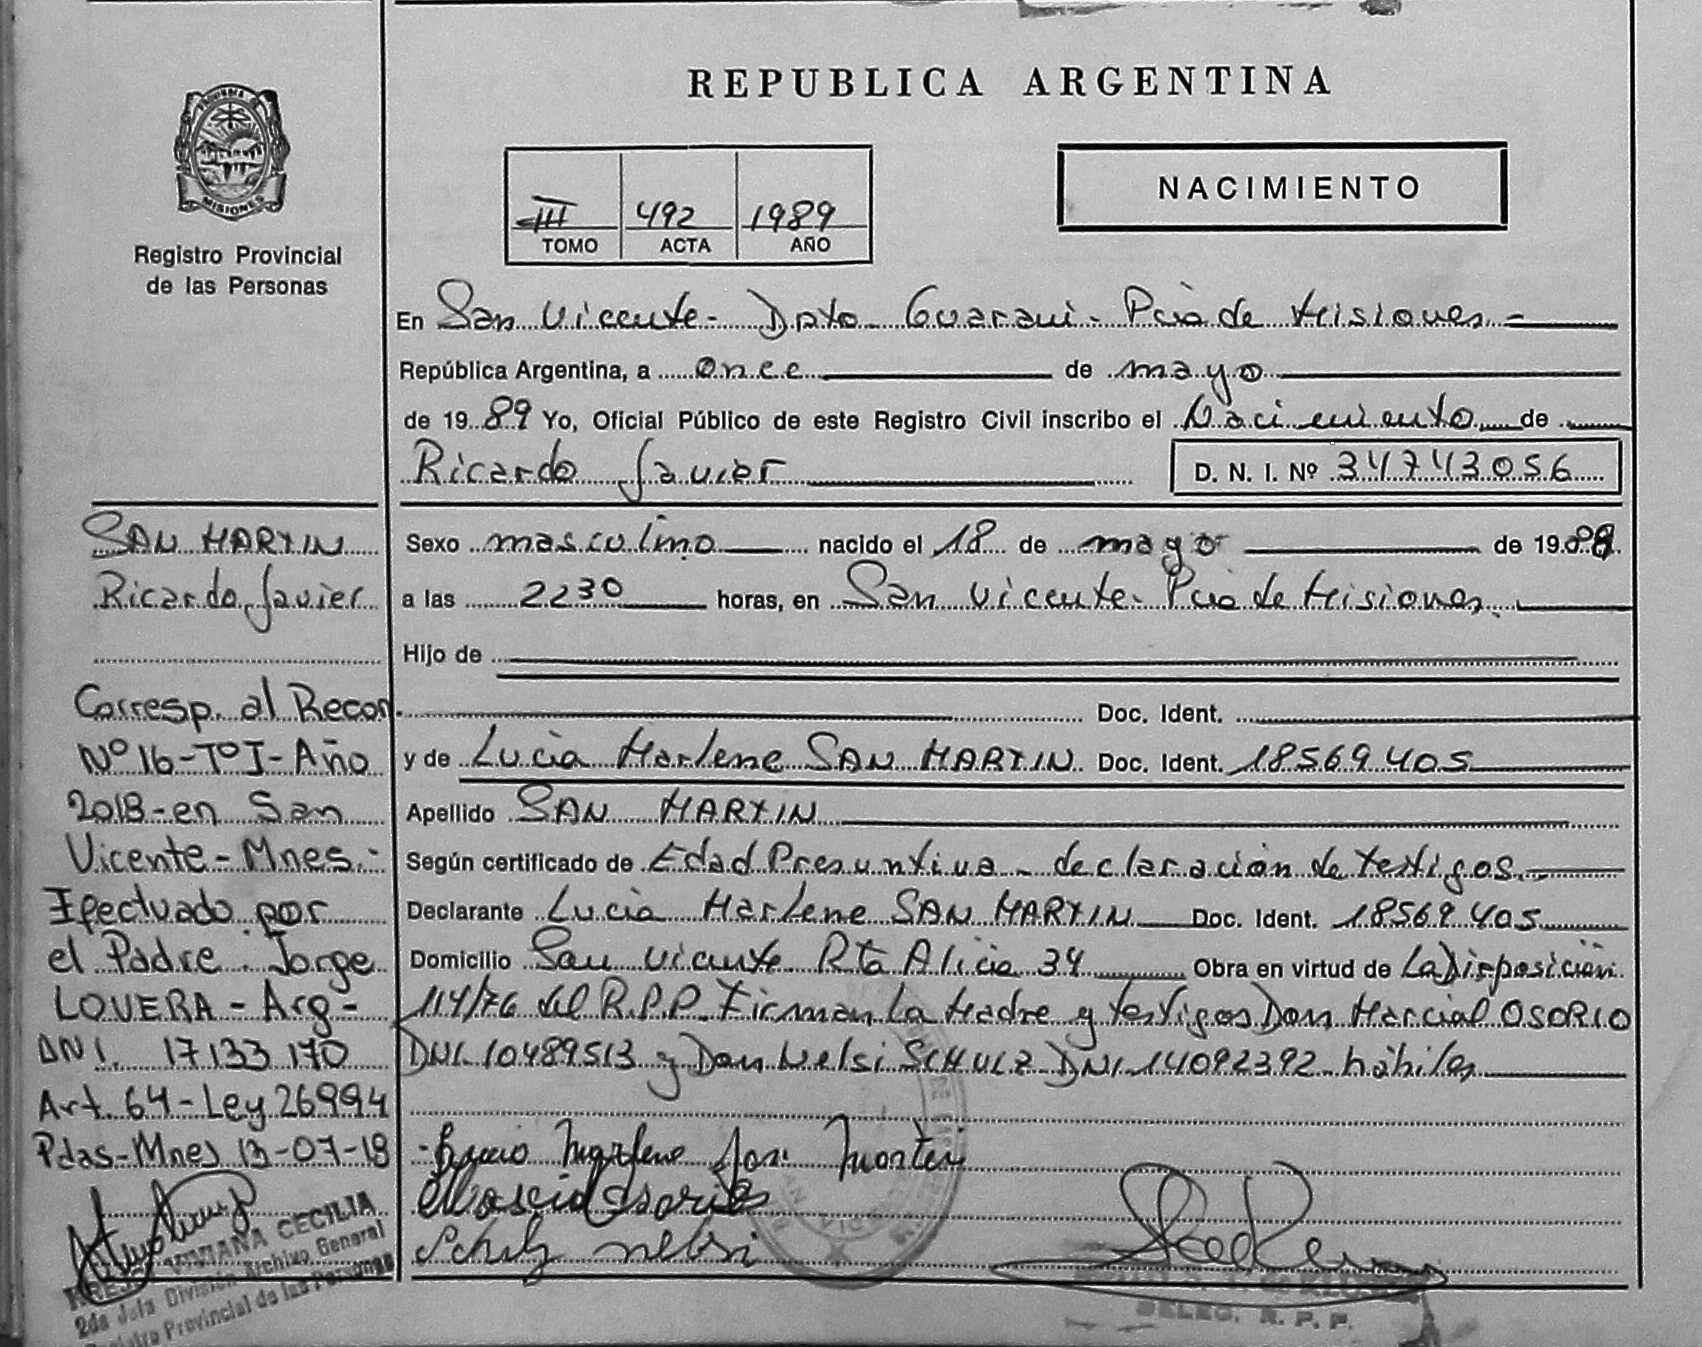 REPUBLICA ARGENTINA
MISIONES
Registro Provincial
de las Personas
III 492 1989
TOMO ACTA AÑO
NACIMIENTO
En San Vicente - Dpto Guarani - Pcia de Misiones -
República Argentina, a once de mayo
de 1989 Yo, Oficial Público de este Registro Civil inscribo el Nacimiento de
Ricardo Javier D. N. I. Nº 34743056
Sexo masculino nacido el 18 de mayo de 19
a las 2230 horas, en San Vicente - Pcia de Misiones.
Hijo de
Doc. Ident.
y de Lucia Marlene SAN MARTIN Doc. Ident. 18569405
Apellido SAN MARTIN
Según certificado de Edad Presuntiva - declaración de testigos. -
Declarante Lucia Marlene SAN MARTIN Doc. Ident. 18569405
Domicilio San Vicente Rta Alicia 34 Obra en virtud de La Disposición
114/76 del R.P.P. Firman La Madre y testigos Don Marcial OSORIO
DNI. 10489513 y Don Nelsi SCHULZ DNI. 14092392 - hábiles
Marlene San Martin
Osorio
Schulz Nelsi
DELEG. R. P. P.
SAN MARTIN
Ricardo Javier
Corresp. al Recon
Nº 16 - Tº I - Año
2018 - en San
Vicente - Mnes. -
Efectuado por
el Padre: Jorge
LOVERA - Arg -
DNI. 17133170
Art. 64 - Ley 26994
Pdas - Mnes 13-07-18
VIVIANA CECILIA
2da Jefa División Archivo General
Registro Provincial de las Personas